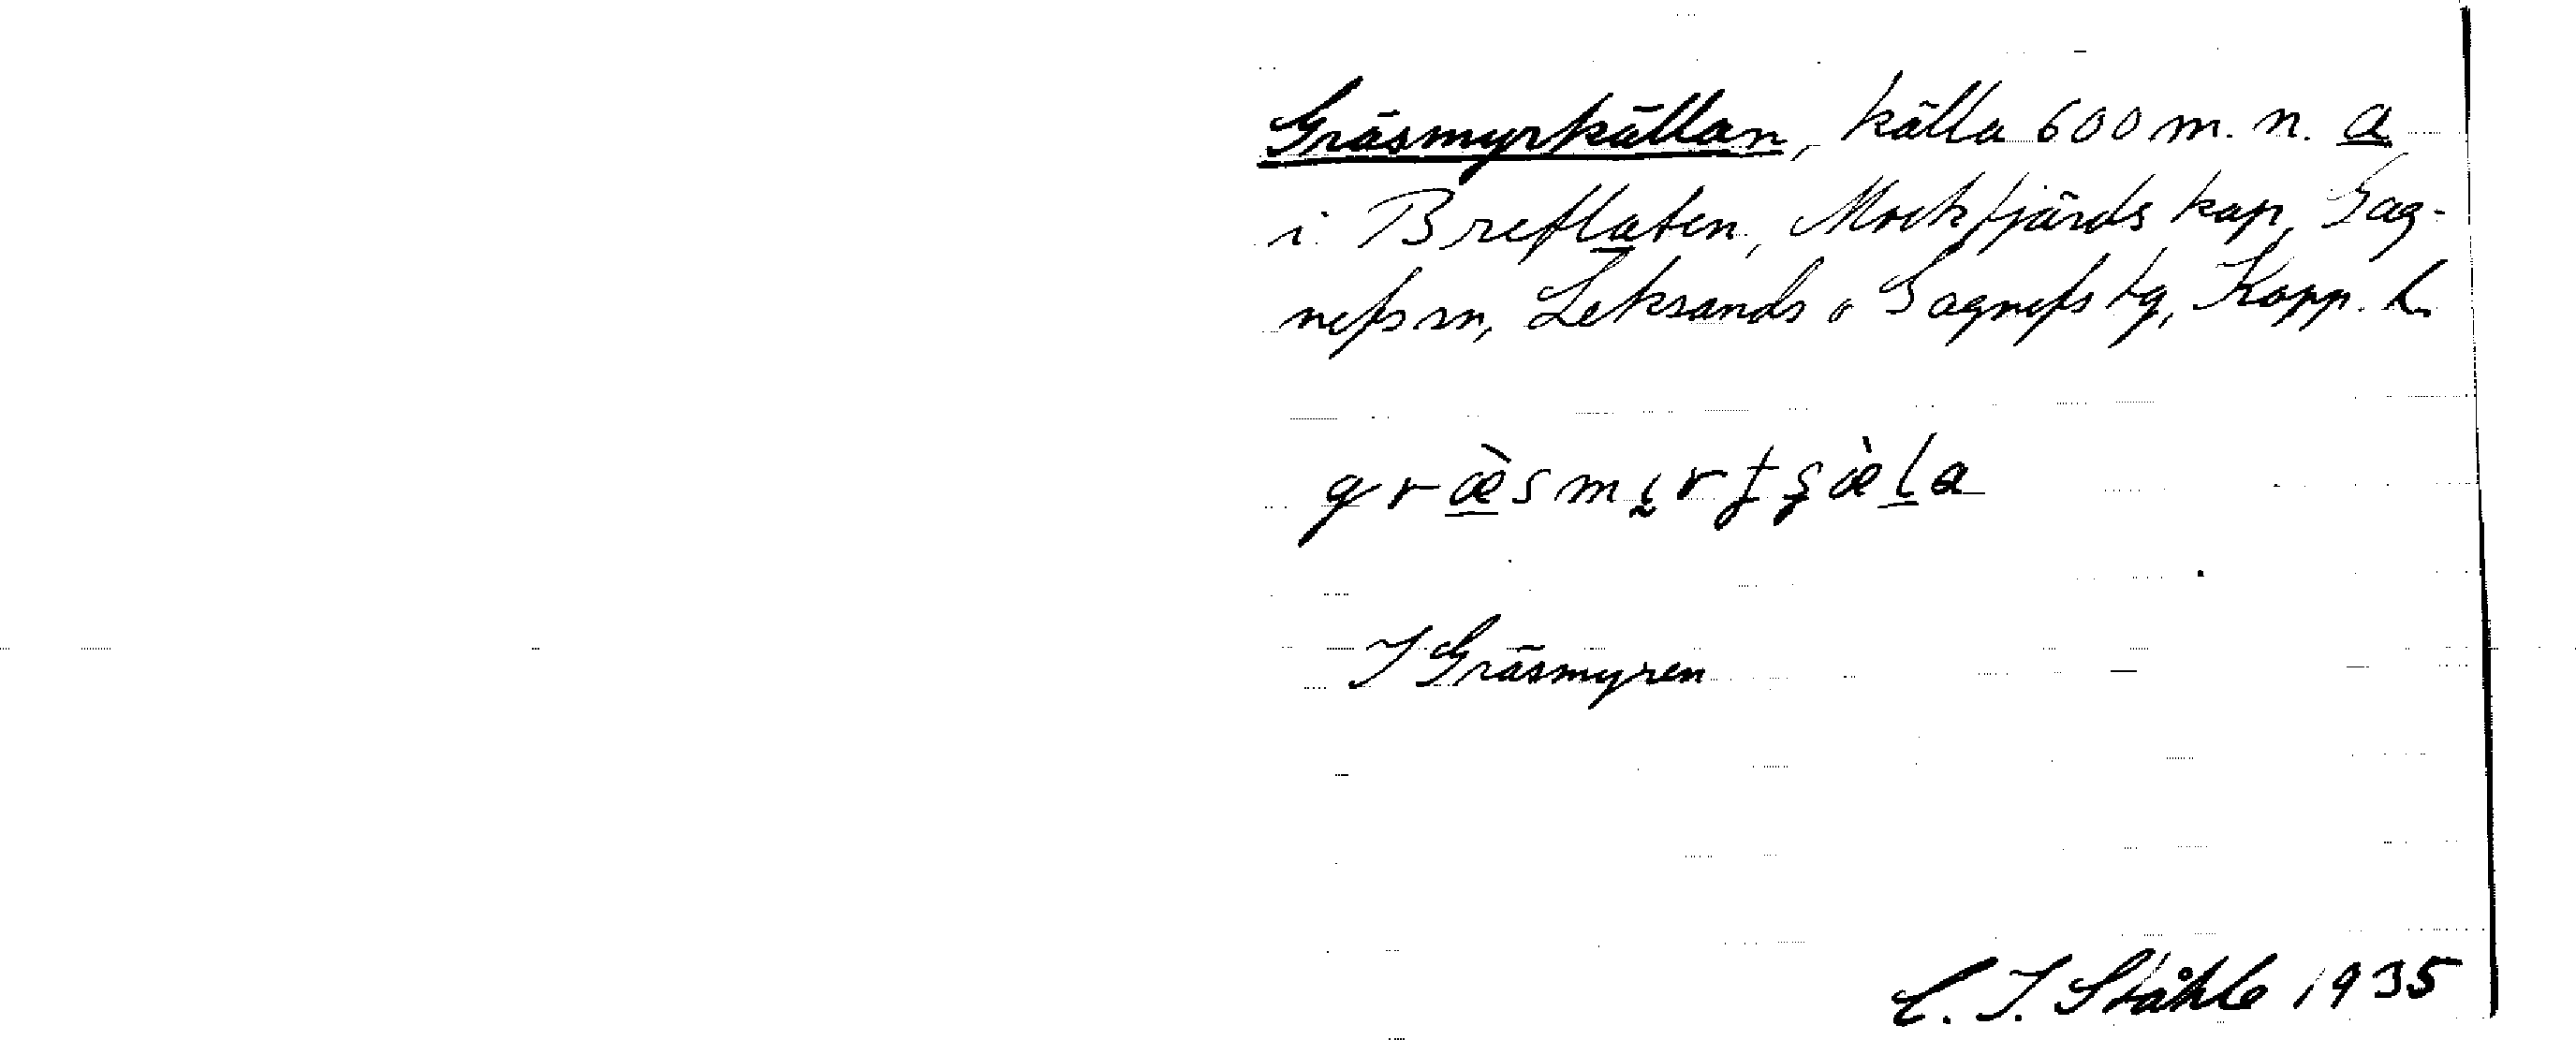 Gräsmyrkällan, källa 600 m. n. a
i Breflaten, Mockfjärds kap, Gag-
nefs sn, Leksands o Gagnefs tg, Kopp. l.
græ̀smırtsæ̀la
I Gräsmyren
C. I. Ståhle 1935